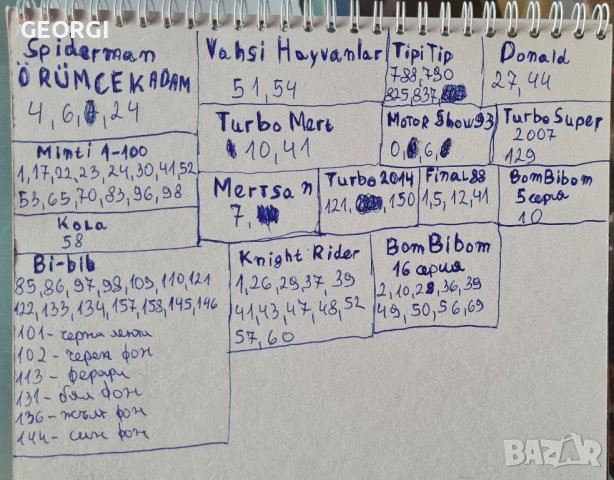 GEORGI
Spiderman
ÖRÜMCEK ADAM
4, 6, 24
Vahşi Hayvanlar
51, 54
TipiTip
788, 790
825, 837,
Donald
27, 44
Turbo Mert
10, 41
Motor Show 93
0, 6,
Turbo Super
2007
129
Minti 1-100
1, 17, 22, 23, 24, 30, 41, 52
53, 65, 70, 83, 96, 98
Mertsan
7,
Turbo 2014
121, 150
Final 88
1, 5, 12, 41
BomBibom
5 серия
10
Kola
58
Bi-bib
85, 86, 97, 98, 109, 110, 121
122, 133, 134, 157, 158, 145, 146
101 - черна лента
102 - черен фон
113 - ферари
131 - бял фон
136 - жълт фон
144 - син фон
Knight Rider
1, 26, 29, 37, 39
41, 43, 47, 48, 52
57, 60
BomBibom
16 серия
2, 10, 28, 36, 39
49, 50, 56, 69
BAZAR